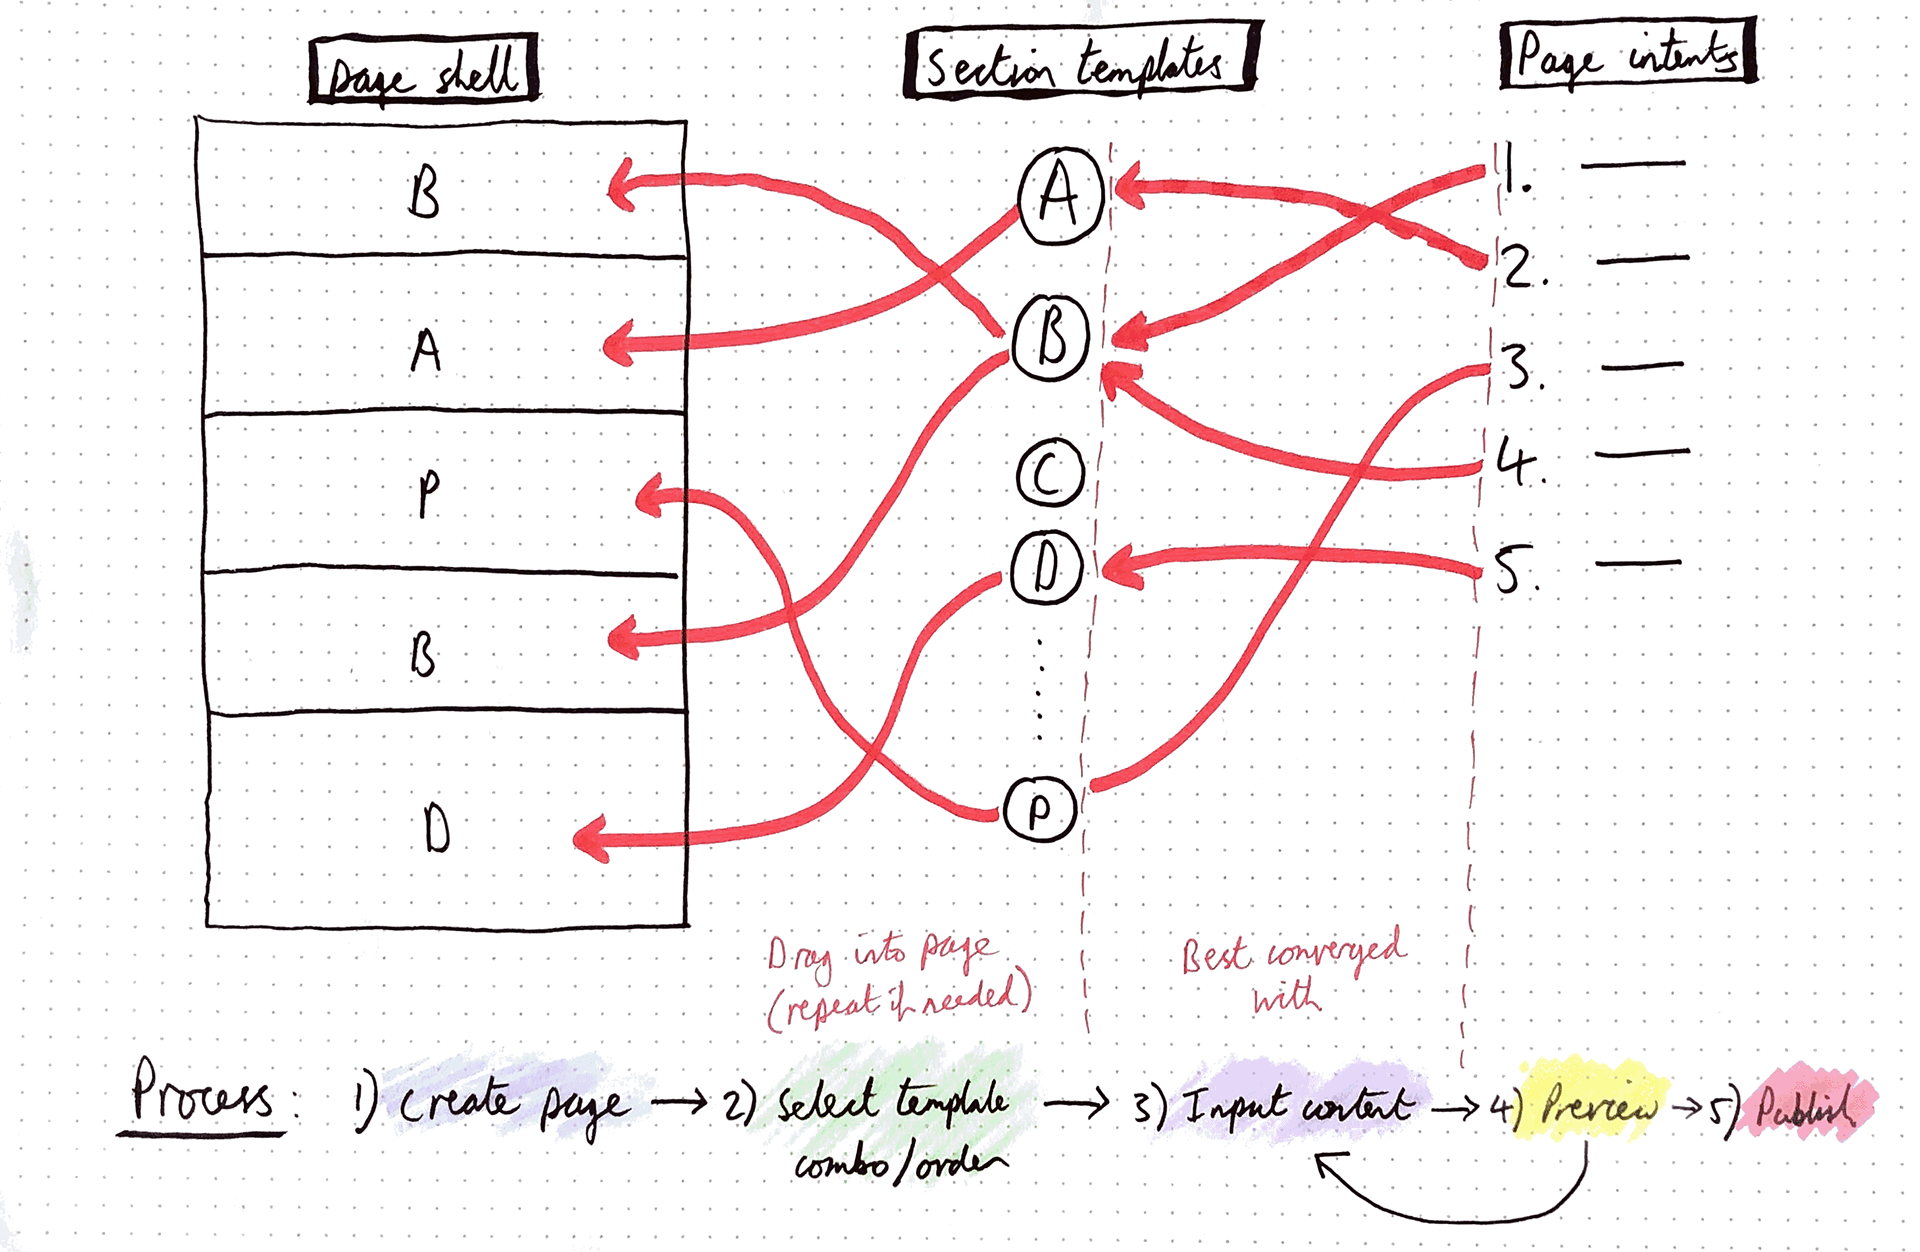 page shell
Section templates
Page intents
B
A
P
B
D
A
B
C
D
P
1.
2.
3.
4.
5.
Drag into page
(repeat if needed)
Best converged
with
Process: 1) Create page → 2) Select template → 3) Input content → 4) Preview → 5) Publish
combo/order